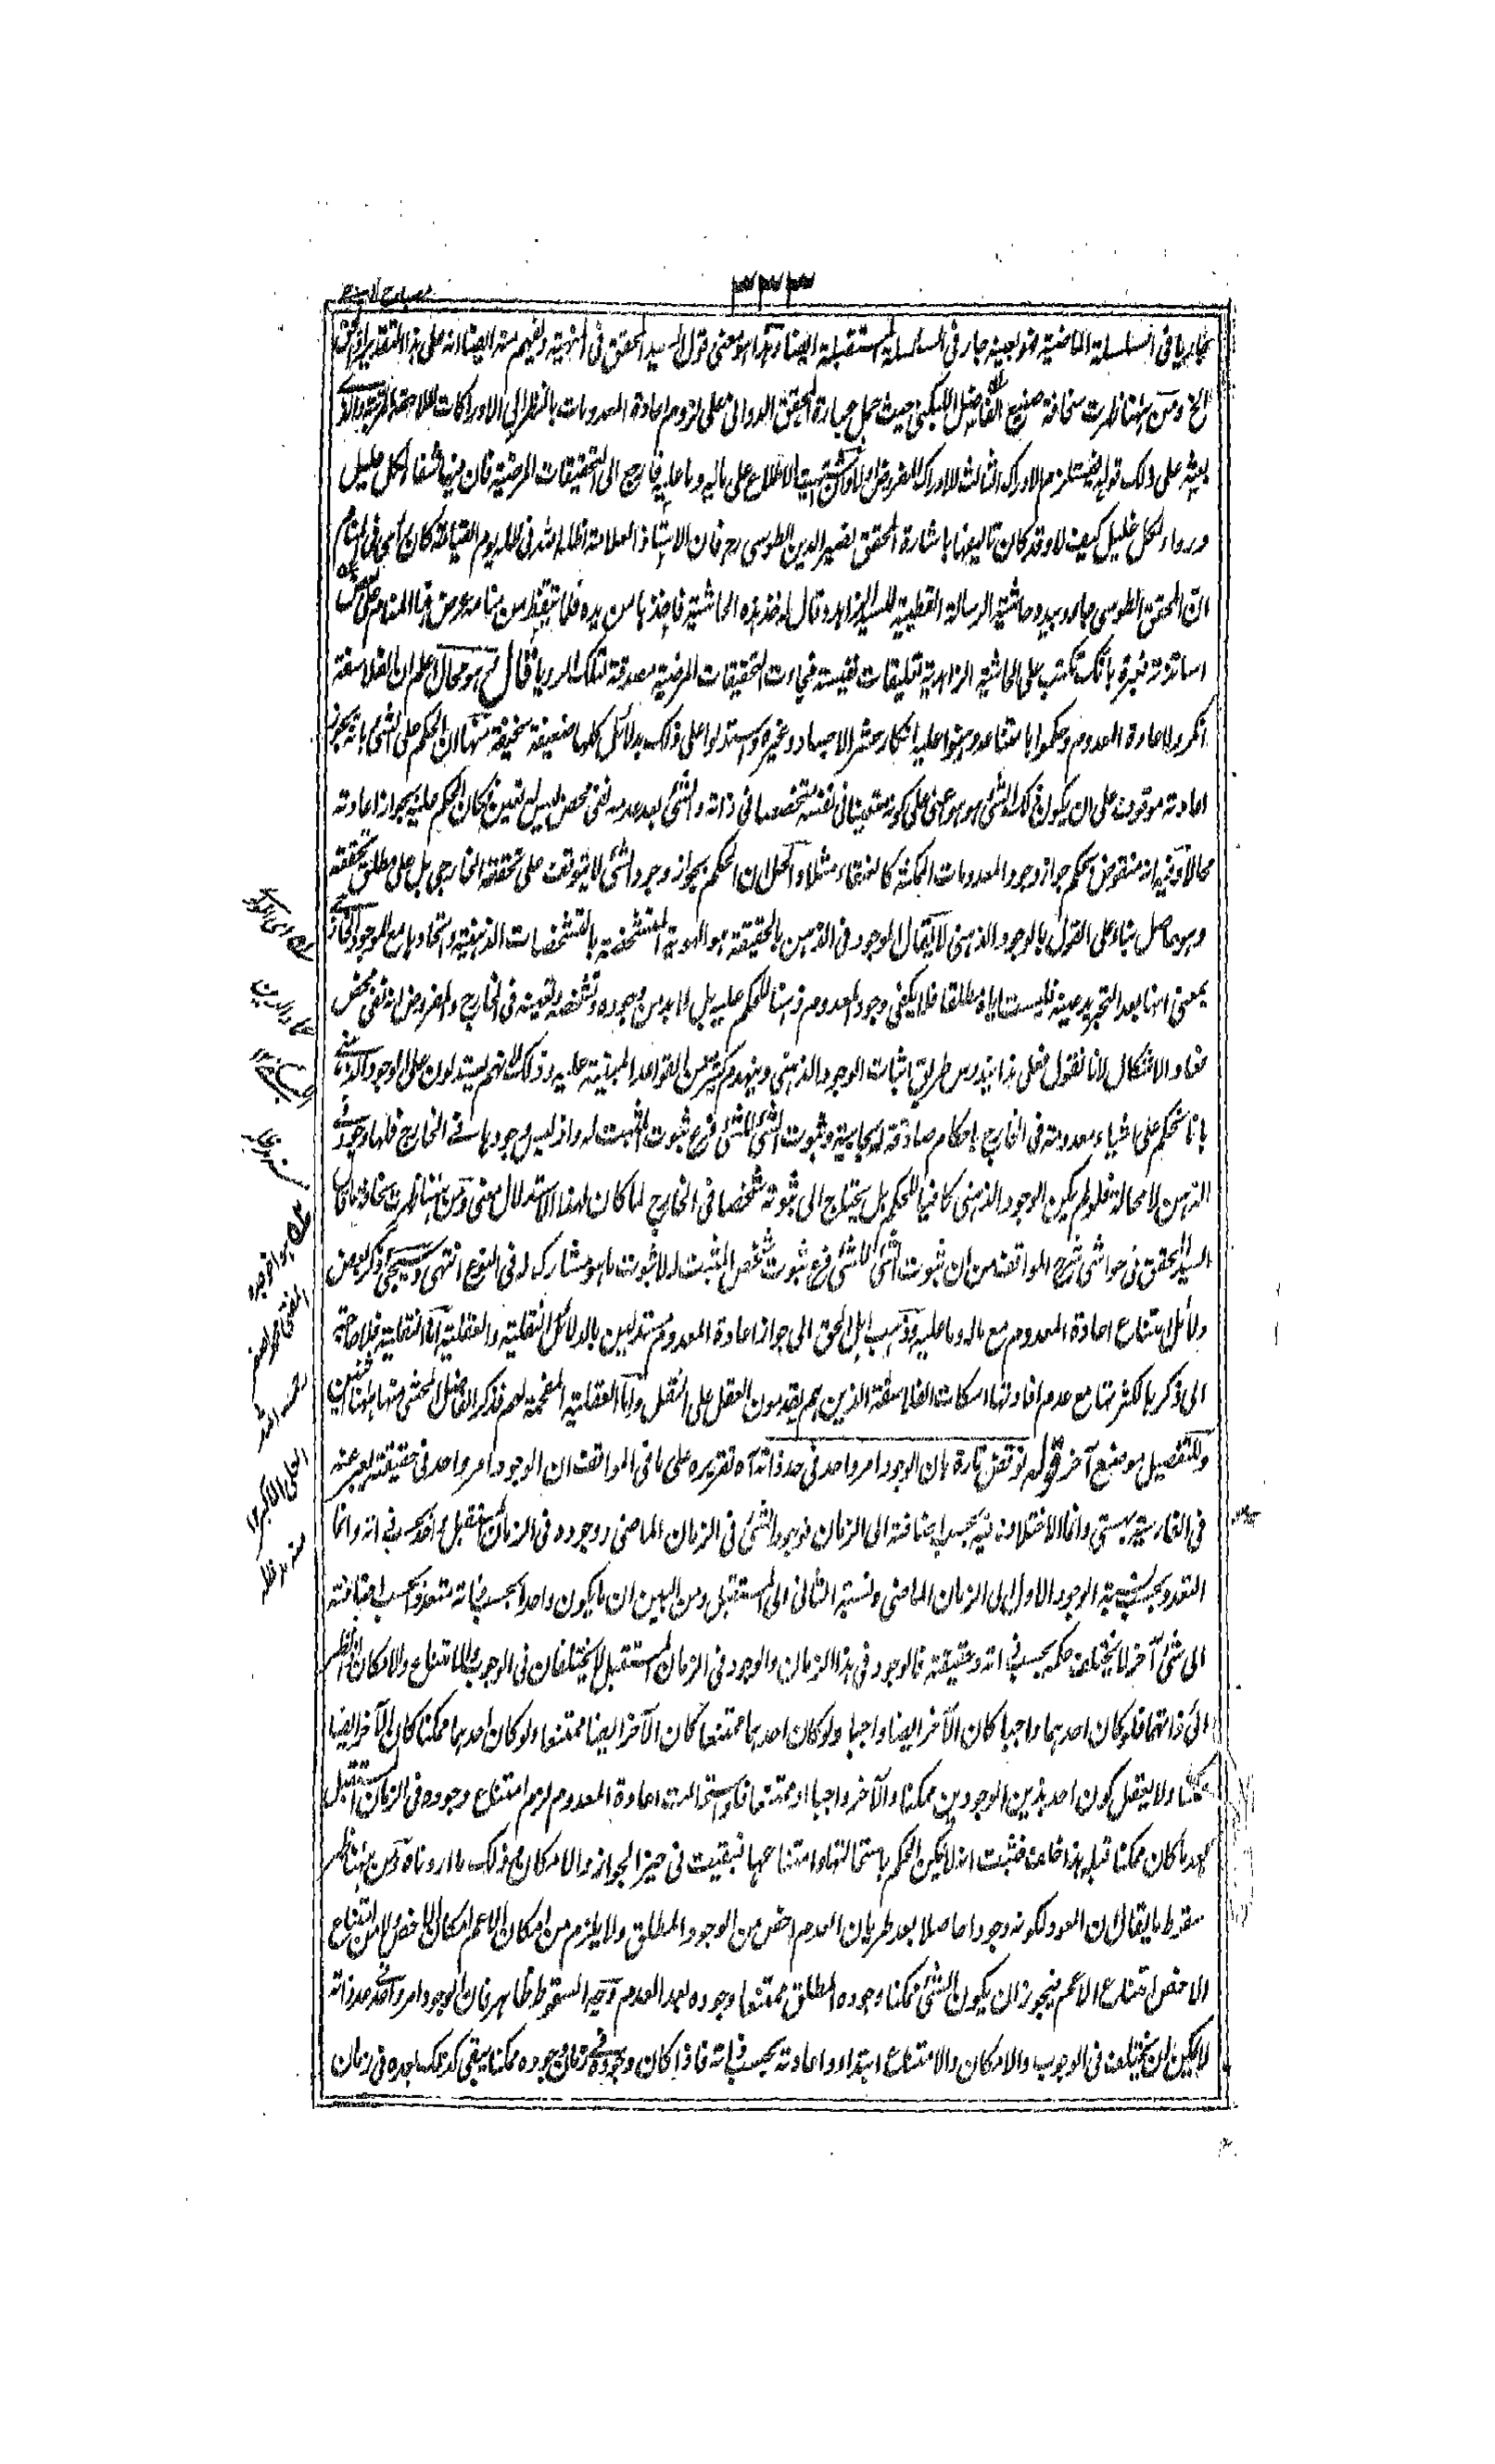 مصباح الدجى
٣٣٣
جاريا في السلسلة الماضية فهو بعينه جار في السلسلة المستقبلة ايضا وهذا هو معنى قول السيد المحقق في المنهية ويفهم منه ايضا انه على هذا التقدير
الخ ومن ههنا ظهرت سخافة صنيع الفاضل اللبكني حيث حمل عبارة المحقق الدواني على لزوم اعادة المعدومات بالنظر الى الادراكات اللاحقة
بعثه على ذلك قوله فيستلزم الادراك الثالث للادراك المفروض اولا وان شئت الاطلاع على ماله وما عليه فارجع الى التحقيقات المرضية فان فيها شفاء لكل عليل
ورواء لكل غليل كيف لا وقد كان تاليفها باشارة المحقق نصير الدين الطوسي رح فان الاستاذ العلامة اظله الله في ظله يوم القيامة كان رأى في المنام
ان المحقق الطوسي جاءه وبيده حاشية الرسالة القطبية للسيد الزاهد وقال له خذ هذه الحاشية فاخذها من يده فلما تيقظ من منامه عرض هذا المنام على بعض
اساتذته فعبره بانك تكتب على الحاشية الزاهدية تعليقات نفيسة فجاءت التحقيقات المرضية مصدقة لتلك الرويا قال هو محال اعلم ان الفلاسفة
انكروا اعادة المعدوم وحكموا بامتناعه وبنوا عليه انكار حشر الاجساد وغيره واستدلوا على ذلك بدلائل كلها ضعيفة سخيفة منها ان الحكم على الشئ بانه يجوز
اعادته موقوف على ان يكون ذلك الشئ هو هو اعني على كونه متعينا في نفسه متشخصا في ذاته والشئ بعد عدمه نفي محض ليس له تعين فكان الحكم عليه بجواز اعادته
محالا وفيه انه منقوض بحكم جواز وجود المعدومات الممكنة كالعنقاء مثلا والحل ان الحكم بجواز وجود الشئ لا يتوقف على تحققه الخارجي بل على مطلق تحققه
وهو حاصل بناء على القول بالوجود الذهني لا يقال الموجود في الذهن بالحقيقة هو الهوية المتشخصة بالتشخصات الذهنية واتحادها مع الموجود الخارجي
بمعنى انها بعد التجريد عينه فليست اياه مطلقا فلا يكفي وجود المعدوم ذهنا للحكم عليه بل لا بد من وجوده وتشخصه وتعينه في الخارج والمفروض انه نفي محض
فعاد الاشكال لانا نقول فعلى هذا يندرس طريق اثبات الوجود الذهني وينهدم كثير من القواعد المبنية عليه وذلك لانهم يستدلون على الوجود الذهني
بانا نحكم على اشياء معدومة في الخارج باحكام صادقة ايجابية وثبوت الشئ للشئ فرع ثبوت المثبت له واذ ليس وجودها في الخارج فلها وجود في
الذهن لا محالة فلو لم يكن الوجود الذهني كافيا للحكم بل يحتاج الى ثبوته شخصا في الخارج لما كان لهذا الاستدلال معنى ومن ههنا ظهرت سخافة
السيد المحقق في حواشي شرح المواقف من ان ثبوت الشئ للشئ فرع ثبوت شخص المثبت له لا ثبوت ما هو مشارك له في النوع انتهى وسيجئ ذكر بعض
دلائل امتناع اعادة المعدوم مع ماله وما عليه وذهب اهل الحق الى جواز اعادة المعدوم مستدلين بالدلائل النقلية والعقلية اما النقلية فلا حاجة
الى ذكرها لكثرتها مع عدم افادتها اسكات الفلاسفة الذين هم يقدمون العقل على النقل واما العقلية المفحمة لهم فذكر الفاضل المحشي منها ههنا اثنين
وللتفصيل موضع آخر قوله نوقض تارة بان الوجود امر واحد في حد ذاته آه تقريره على ما في المواقف ان الوجود امر واحد في حقيقته يعبر عنه
في الفارسية بهستي وانما الاختلاف فيه بحسب اضافته الى الزمان فوجود الشئ في الزمان الماضي ووجوده في الزمان المستقبل واحد بحسب ذاته وانما
التعدد بحسب نسبة الوجود الاول الى الزمان الماضي ونسبة الثاني الى المستقبل ومن البين ان ما يكون واحدا بحسب ذاته متعددا بحسب اضافته
الى شئ آخر لا يختلف حكمه بحسب ذاته وحقيقته فالوجود في هذا الزمان والوجود في الزمان المستقبل لا يختلفان في الوجوب والامتناع والامكان بالنظر
الى ذاتهما فلو كان احدهما واجبا كان الآخر ايضا واجبا ولو كان احدهما ممتنعا كان الآخر ايضا ممتنعا ولو كان احدهما ممكنا كان الآخر ايضا
ممكنا ولا يعقل كون احد هذين الوجودين ممكنا والآخر واجبا او ممتنعا فلو استحالت اعادة المعدوم لزم امتناع وجوده في الزمان المستقبل
بعد ما كان ممكنا قبله هذا خلف فثبت انه لا يمكن الحكم باستحالتها وامتناعها فبقيت في حيز الجواز والامكان وذلك ما اردناه ومن ههنا ظهر
سقوط ما يقال ان العود لكونه وجودا حاصلا بعد طريان العدم اخص من الوجود المطلق ولا يلزم من امكان الاعم امكان الاخص ولا من امتناع
الاخص امتناع الاعم فيجوز ان يكون الشئ ممكنا وجوده المطلق ممتنعا وجوده بعد العدم وجه السقوط ظاهر فان الوجود امر واحد في حد ذاته
لا يمكن ان يختلف في الوجوب والامكان والامتناع ابتداء واعادته بحسب ذاته فاذا كان وجوده في زمان وجوده ممكنا يبقى كذلك بعده في زمان
هو اخوجده
المفتي محمد اصغر
رحمه الله
العلي الاكبر ١٢
منه مد ظله